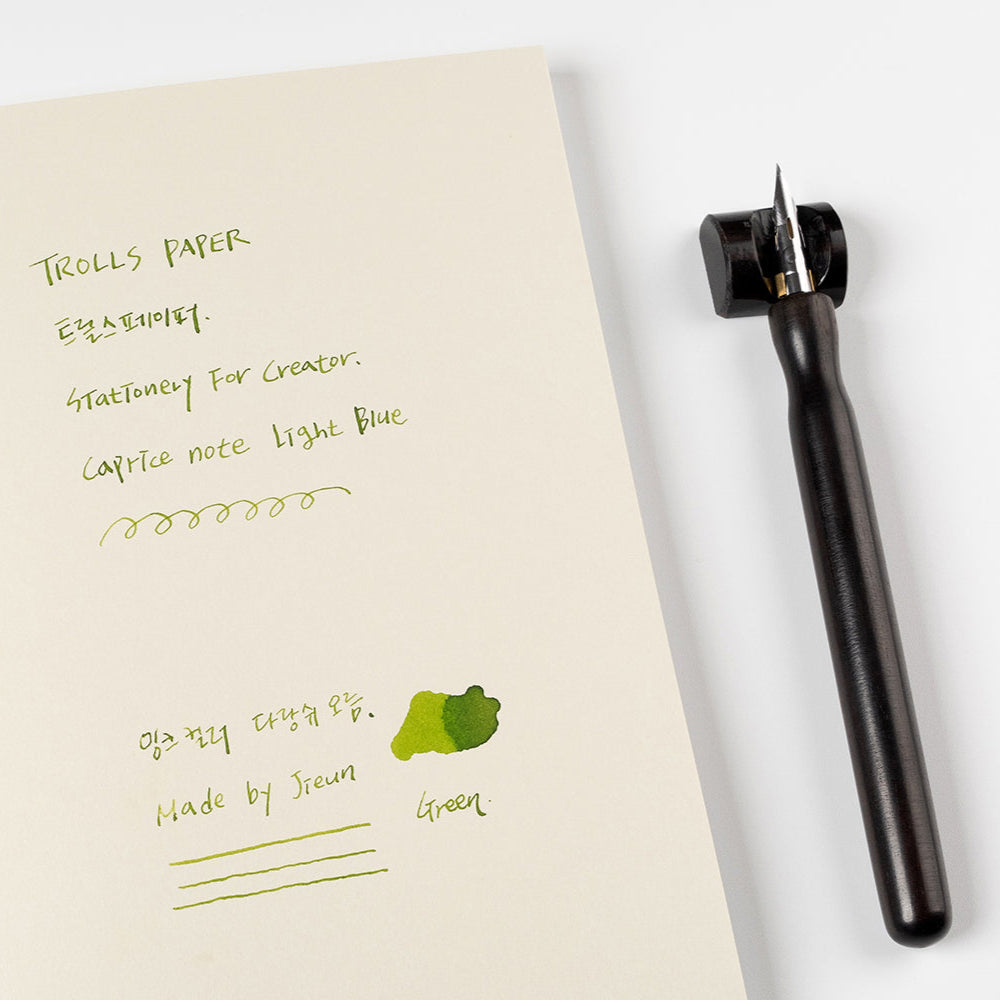 TROLLS PAPER
트롤스페이퍼.
Stationery For Creator.
Caprice note Light Blue
잉크컬러 다랑쉬 오름.
Made by Jieun
Green.